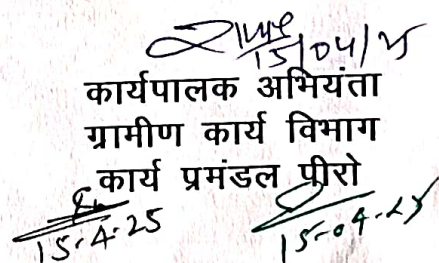 15/04/25
कार्यपालक अभियंता
ग्रामीण कार्य विभाग
कार्य प्रमंडल पीरो
15.4.25
15.04.25